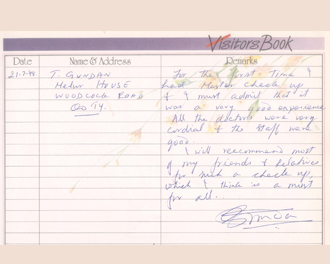 Visitors Book
Date
Name & Address
Remarks
T. GUNDAN
HOUSE
WOODCOCK ROAD
OOTY.
For the first time I
had Master check up
& I must admit that it
was a very good experience
All the doctors were very
cordial & the staff were
good.
I will recommend most
of my friends & relatives
for such a check up,
which I think is a must
for all.